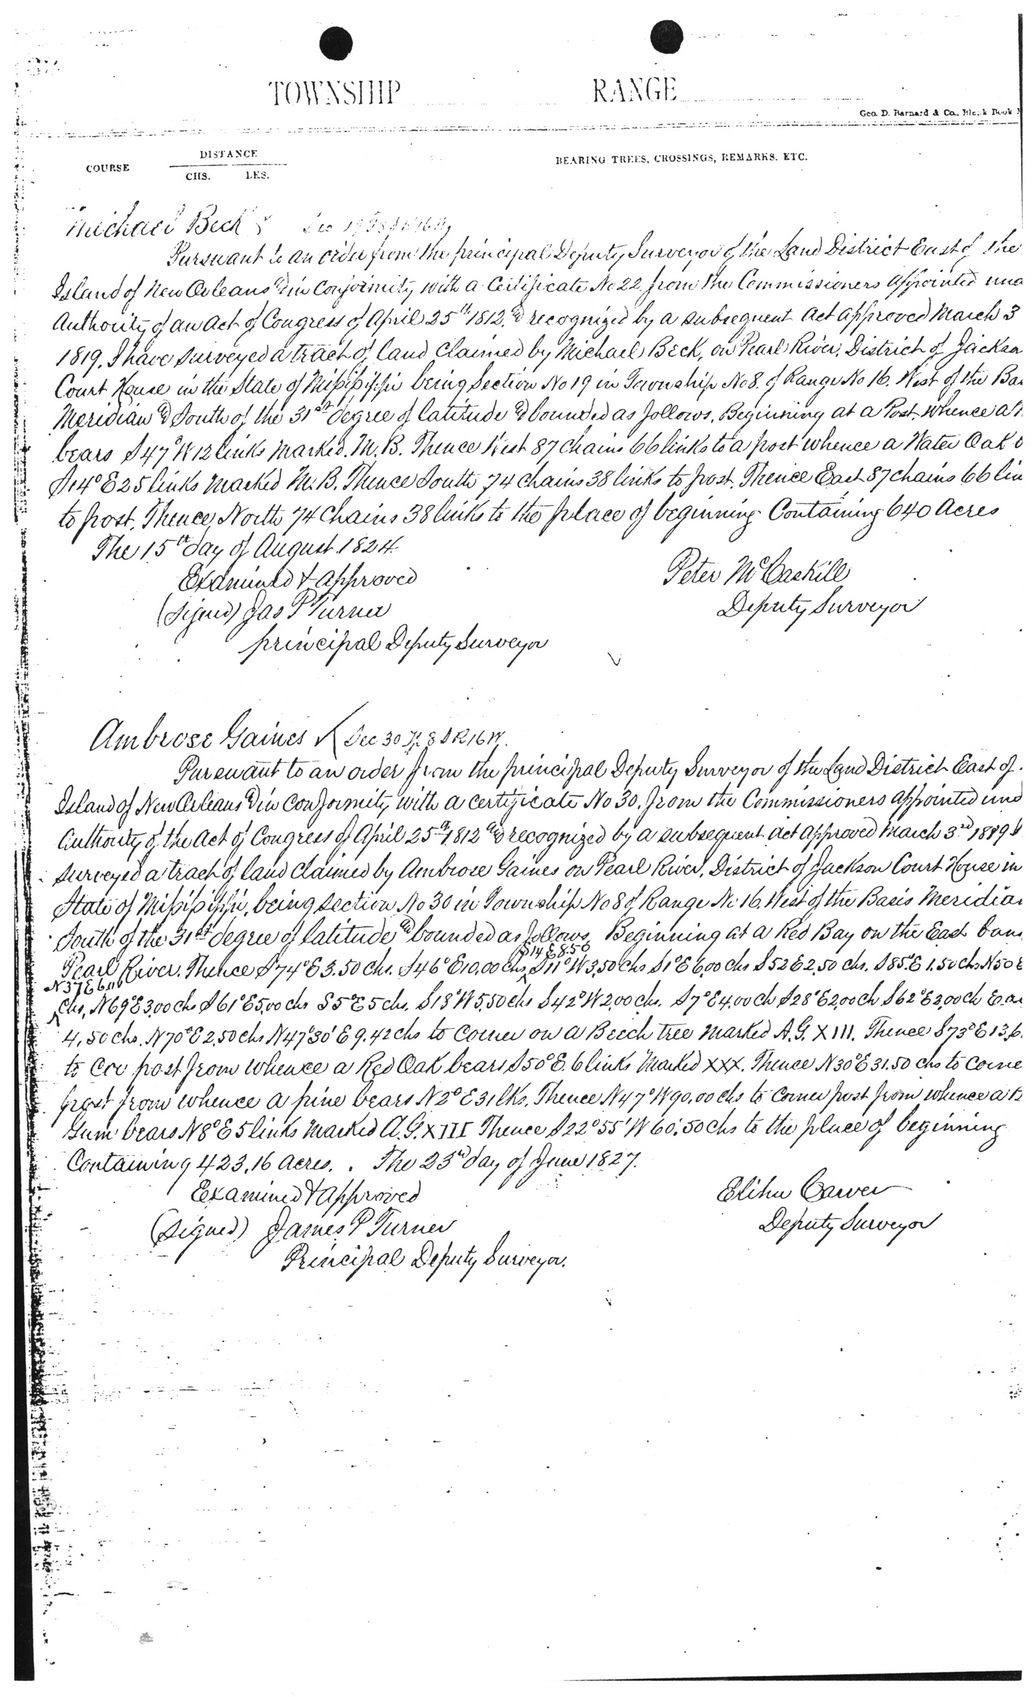 TOWNSHIP RANGE
Geo. D. Barnard & Co., Blank Book
COURSE DISTANCE CHS. LKS. BEARING TREES, CROSSINGS, REMARKS, ETC.
Michael Beck Sec 19 T 8 S R 16 W
Pursuant to an order from the principal Deputy Surveyor of the Land District East of the
Island of New Orleans & in Conformity with a Certificate No 22 from the Commissioners appointed
Authority of an Act of Congress of April 25th 1812, & recognized by a subsequent act approved March 3
1819. I have surveyed a tract of land claimed by Michael Beck, on Pearl River, District of Jackson
Court House in the State of Missisippi being Section No 19 in Township No 8. of Range No 16. West of the
Meridian & South of the 31st degree of latitude & bounded as follows. Beginning at a Post whence a
bears S 47° W 12 links marked M.B. Thence West 87 chains 66 links to a post whence a Water Oak
S 14° E 25 links marked M.B. Thence South 74 chains 38 links to post. Thence East 87 chains 66
to post. Thence North 74 chains 38 links to the place of beginning. Containing 640 acres
The 15th day of August 1824.
Examined & approved Peter McCaskill
(Signed) Jas P Turner Deputy Surveyor
principal Deputy Surveyor
Ambrose Gaines Sec 30 Tp 8 S R 16 W.
Pursuant to an order from the principal Deputy Surveyor of the Land District East of
Island of New Orleans & in conformity with a certificate No 30. from the Commissioners appointed
Authority of the Act of Congress of April 25th 1812 & recognized by a subsequent act approved March 3rd 1819 I
surveyed a tract of land claimed by Ambrose Gaines on Pearl River, District of Jackson Court House in
State of Missisippi, being section No 30 in Township No 8 of Range No 16 West of the Basis Meridian
South of the 31st degree of latitude & bounded as follows, Beginning at a Red Bay on the East
S 14 E 8.50
Pearl River. Thence S 74° E 3.50 chs. S 46° E 10.00 chs, S 11° W 3.50 chs S 1° E 6.00 chs S 52 E 2.50 chs. S 85° E 1.50 chs N 50 E
N 37 E 6.00
chs, N 69° E 3.00 chs S 61° E 5.00 chs S 5° E 5 chs. S 18° W 5.50 chs S 42° W 2.00 chs. S 7° E 4.00 ch S 28° E 2.00 ch S 62° E 3.00 ch
4.50 chs. N 70° E 2.50 chs N 47°30' E 9.42 chs to corner on a Beech tree marked A.G. XIII. Thence S 73° E 13.6
to post from whence a Red Oak bears S 50° E. 6 links Marked XXX. Thence N 30° E 31.50 chs to
post from whence a pine bears N 2° E 31 lks. Thence N 47° W 90.00 chs to Corner post from whence a
Gum bears N 8° E 5 links marked A.G. XIII Thence S 22° 55' W 60.50 chs to the place of beginning
Containing 423.16 acres. The 23rd day of June 1827.
Examined & Approved Elihu Carver
(Signed) James P Turner Deputy Surveyor
Principal Deputy Surveyor.